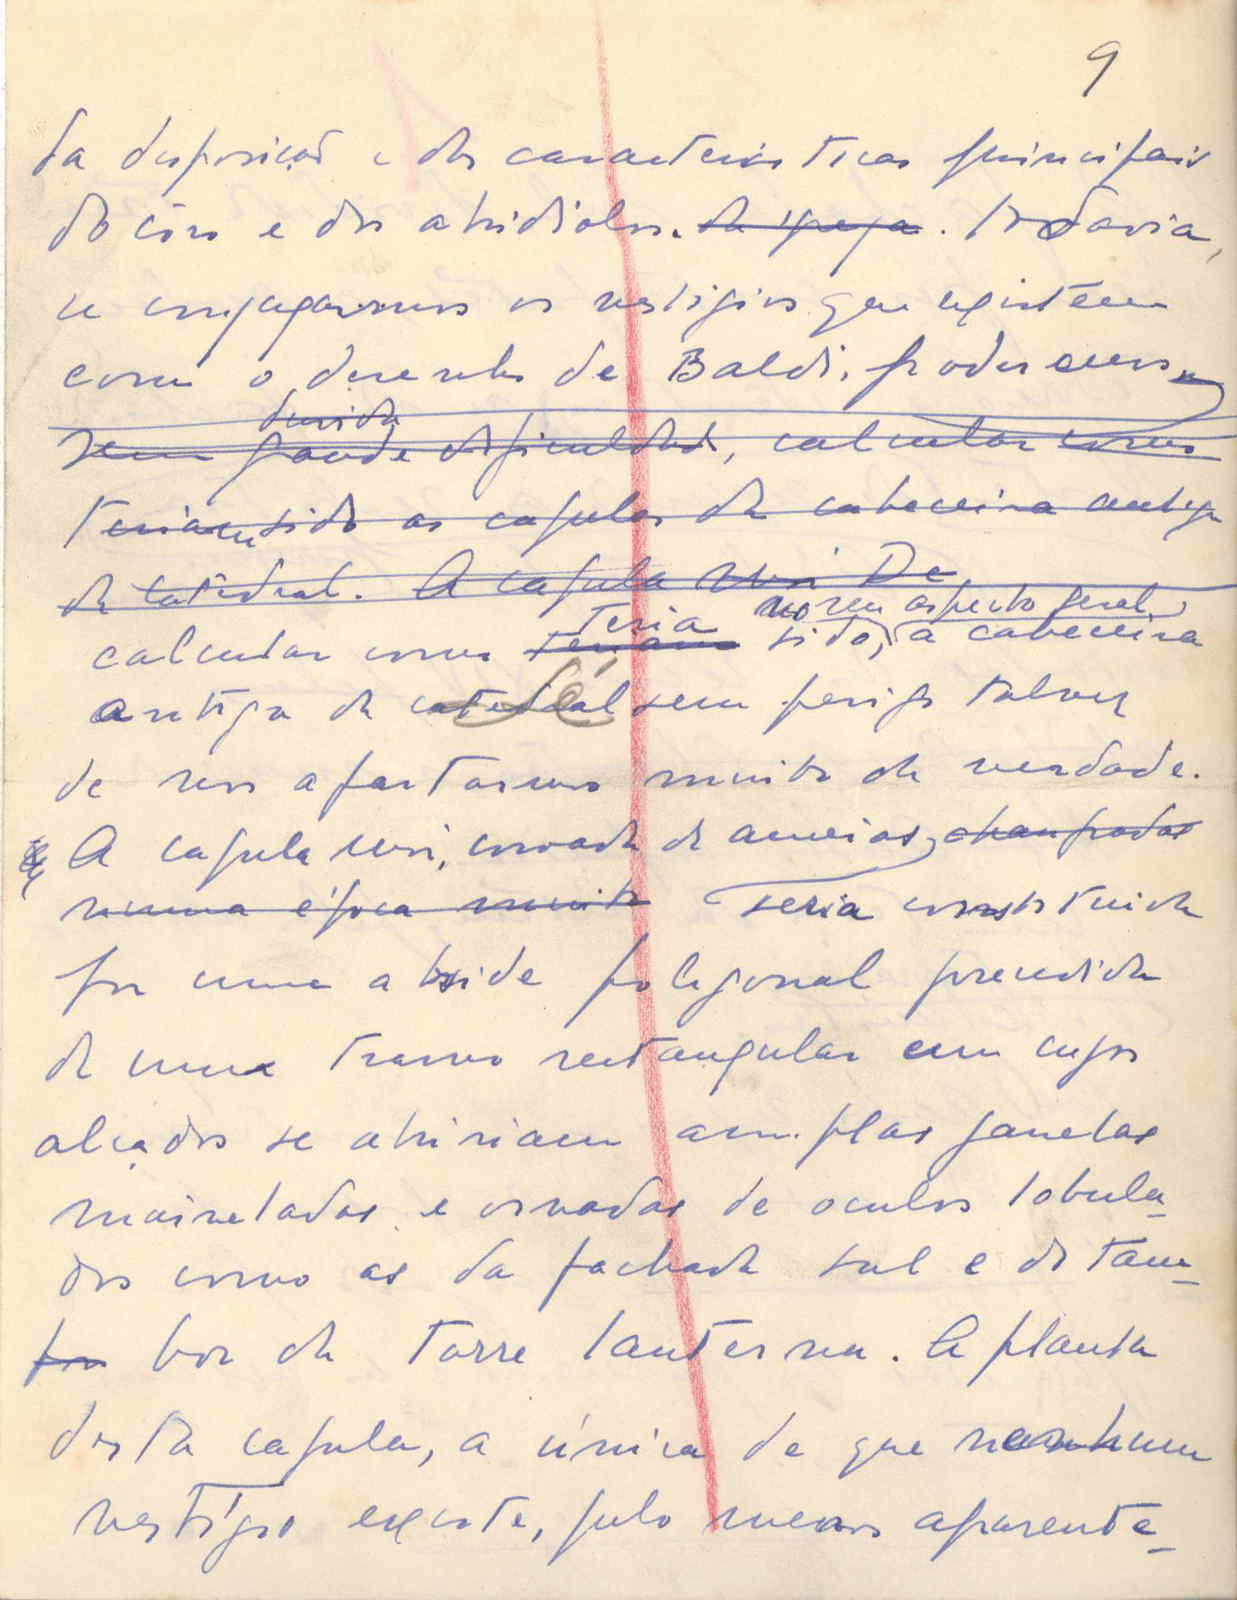 9
da disposição e das características principais
do côro e dos absidíolos. da igreja. Todavia,
se conjugarmos os vestígios que existem
com o desenho de Baldi, podemos
dúvida
sem grande dificuldade, calcular como
teriam sido as capelas da cabeceira antiga
da catedral. A capela mor De
teria no seu aspecto geral,
calcular como teriam sido, a cabeceira
Sé
antiga da catedral sem perigo talvez
de nos afastarmos muito da verdade.
A capela mor, coroada de ameias, chanfradas
numa época muito teria constituida
por uma abside poligonal precedida
de uma tramo rectangular em cujos
alçados se abririam amplas janelas
maineladas e ornadas de oculos lobula-
dos como as da fachada sul e do tam-
bor da torre lanterna. A planta
desta capela, a única de que nenhum
vestígio existe, pelo menos aparente-